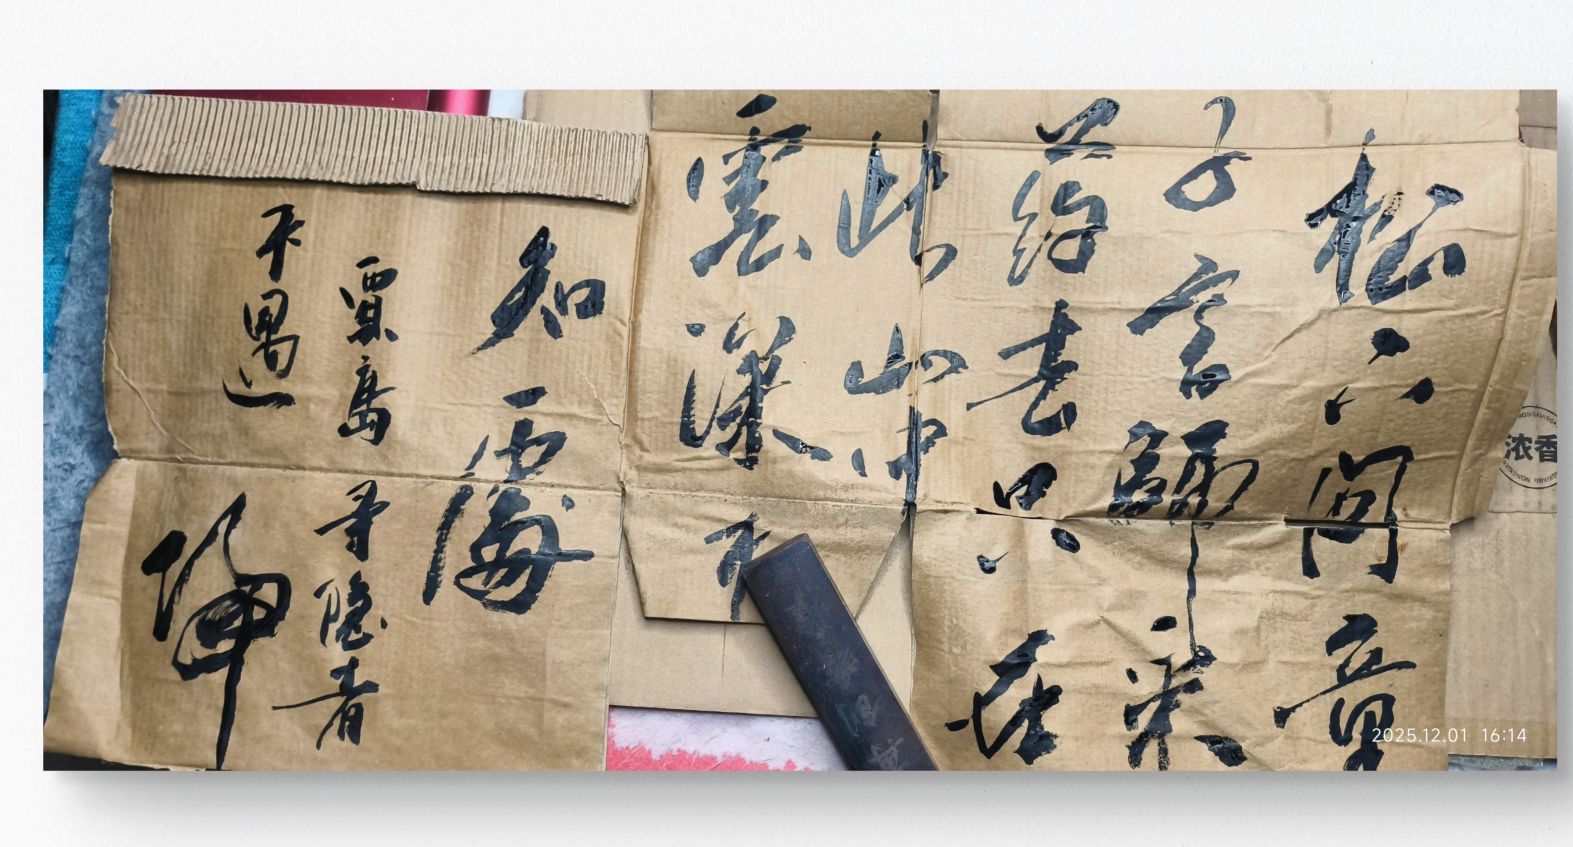 松下问童
子言師采
药去只在
此山中
雲深不
知處
賈島寻隐者
不遇
浓香
2025.12.01 16:14